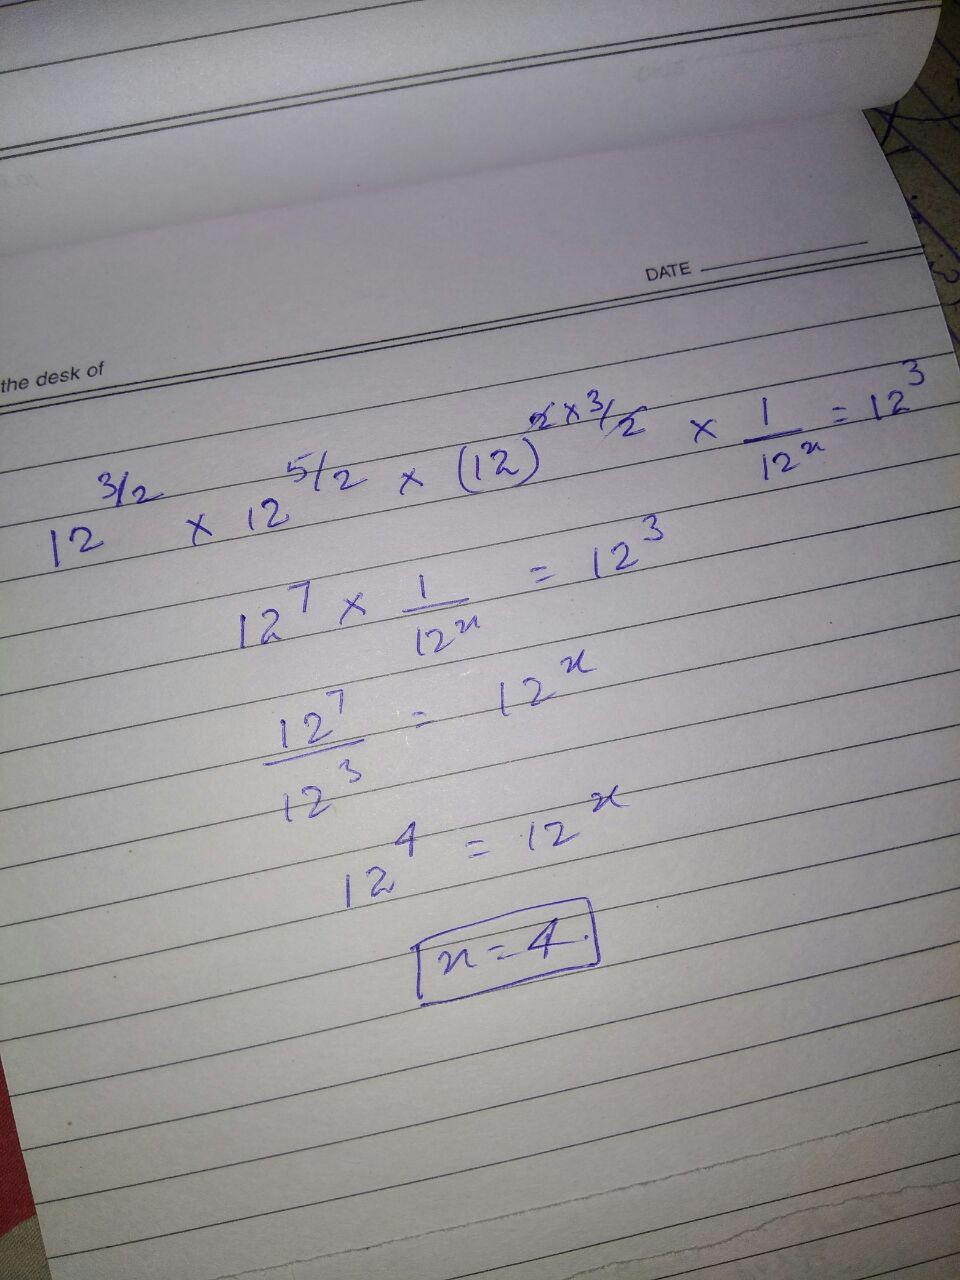 DATE
the desk of
12^{3/2} × 12^{5/2} × (12)^{2×3/2} × 1/12^x = 12^3
12^7 × 1/12^x = 12^3
12^7/12^3 = 12^x
12^4 = 12^x
x = 4.